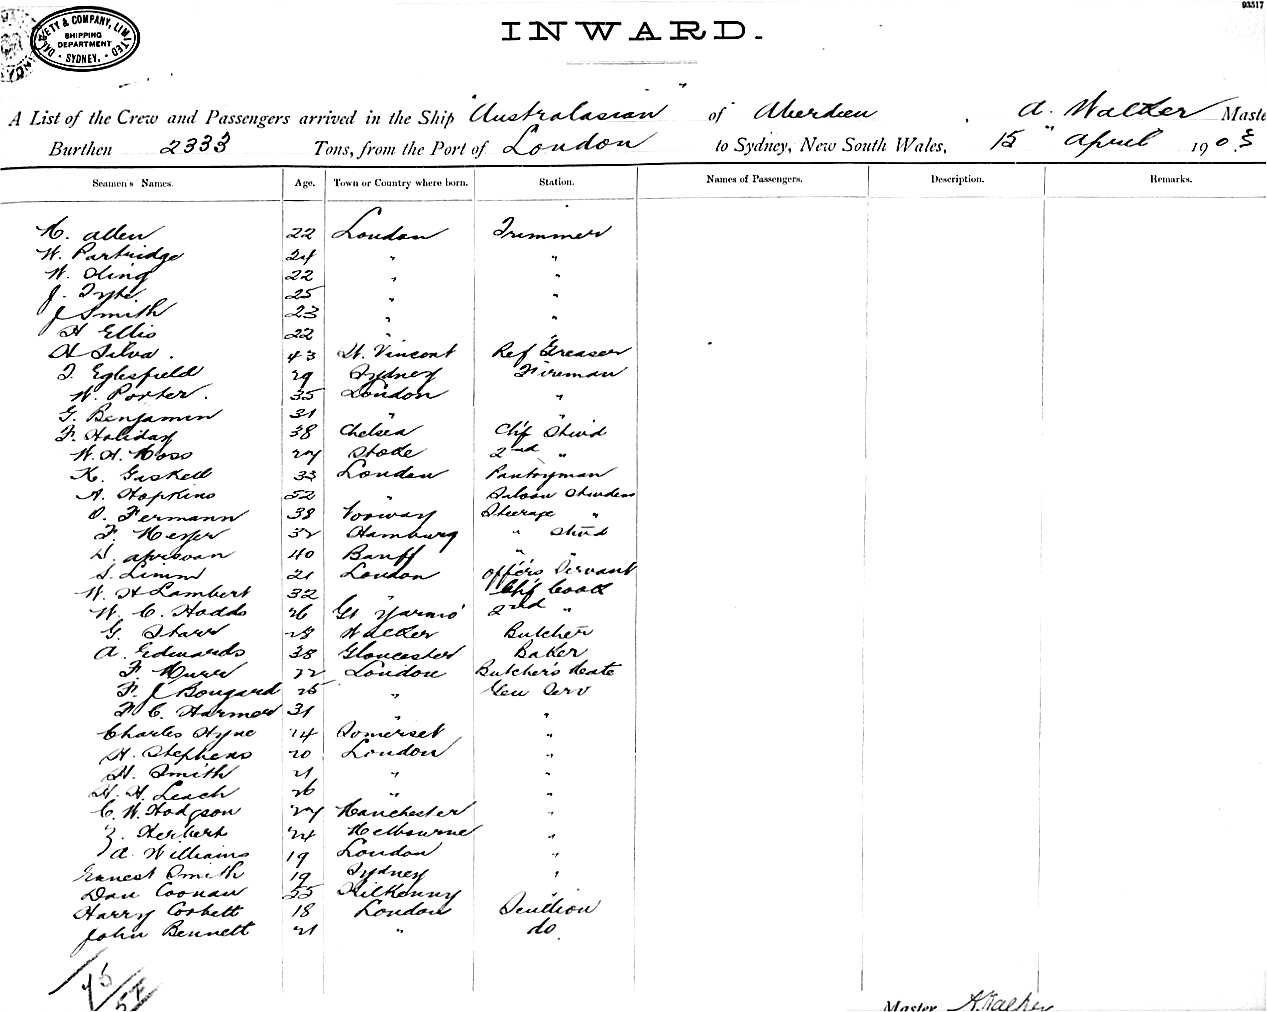 93517
DALGETY & COMPANY, LIMITED
SHIPPING
DEPARTMENT
SYDNEY.
INWARD.
A List of the Crew and Passengers arrived in the Ship "Australasian" of Aberdeen, A. Walker Maste
Burthen 2333 Tons, from the Port of London to Sydney, New South Wales, 15" April 190
Seamen's Names. Age. Town or Country where born. Station. Names of Passengers. Description. Remarks.
Allen 22 London Trimmer
W. Partridge 24 " "
W. 22 " "
J. 25 " "
J Smith 23 " "
H Ellis 22 " "
Silva. 43 St. Vincent Ref Greaser
T. Eglesfield 29 Sydney Fireman
W. Porter. 35 London "
G. Benjamin 31 " "
F. Holiday 38 Chelsea Chf Stwd
W. H. Moss 27 Stoke 2nd "
K. Gaskell 33 London Pantryman
A. Hopkins 52 " Saloon
O. Fermann 38 Norway Steerage "
F. Meyer 32 Hamburg " Stwd
40 Banff " "
S. Limm 21 London Servant
W. H Lambert 32 " Chf Cook
W. C. Hodds 26 Gt Yarmo' 2nd "
G. Starr 28 Walker Butcher
A. Edwards 38 Gloucester Baker
F. Murr 22 London Butcher's Mate
F. J Bougard 25 " Gen Serv
F C. Harmer 31 " "
Charles Hyne 24 Somerset "
H. Stephens 20 London "
H. Smith 21 " "
H. H. Leach 26 " "
C. W. Hodgson 27 Manchester "
Herbert 24 Melbourne "
A. Williams 19 London "
Ernest Smith 19 Sydney "
Dan Coonan 55 Kilkenny "
Harry Corbett 18 London Scullion
John Bennett 21 " do.
Master A. Walker